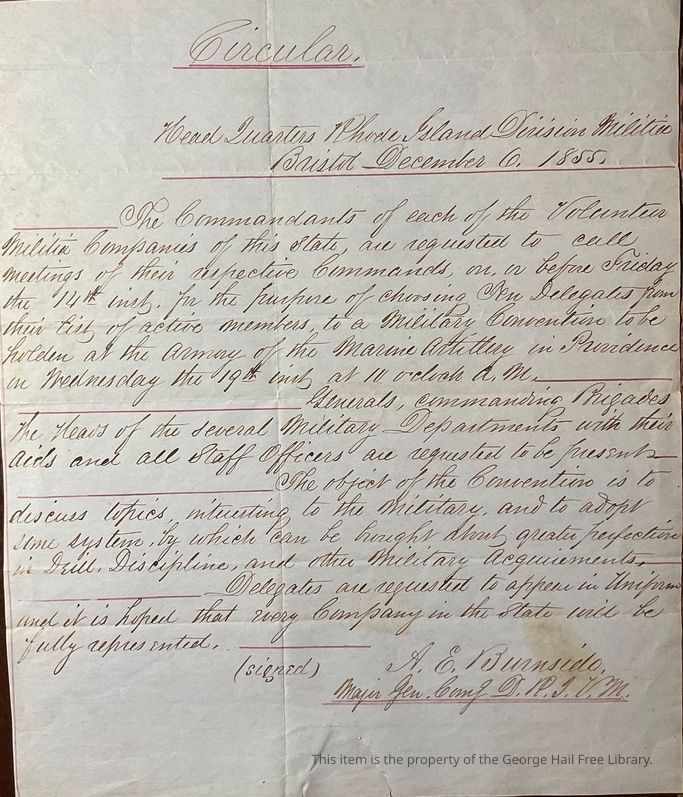 Circular.
Head Quarters Rhode Island Division Militia
Bristol December 6. 1855.
The Commandants of each of the Volunteer
Militia Companies of this State, are requested to call
meetings of their respective Commands, on, or before Friday
the 14th inst. for the purpose of choosing Ten Delegates from
their list of active members, to a Military Convention to be
holden at the Armory of the Marine Artillery in Providence
on Wednesday the 19th inst, at 10 o'clock A.M.
Generals, commanding Brigades
The Heads of the several Military Departments with their
Aids and all Staff Officers are requested to be present
The object of the Convention is to
discuss topics, interesting to the Military, and to adopt
some system, by which can be bought about, greater perfection
in Drill, Discipline, and other Military Acquirements.
Delegates are requested to appear in Uniform
and it is hoped that every Company in the State will be
fully represented.
(signed) A. E. Burnside,
Major Gen. Comg D. R. I. V. M.
This item is the property of the George Hail Free Library.